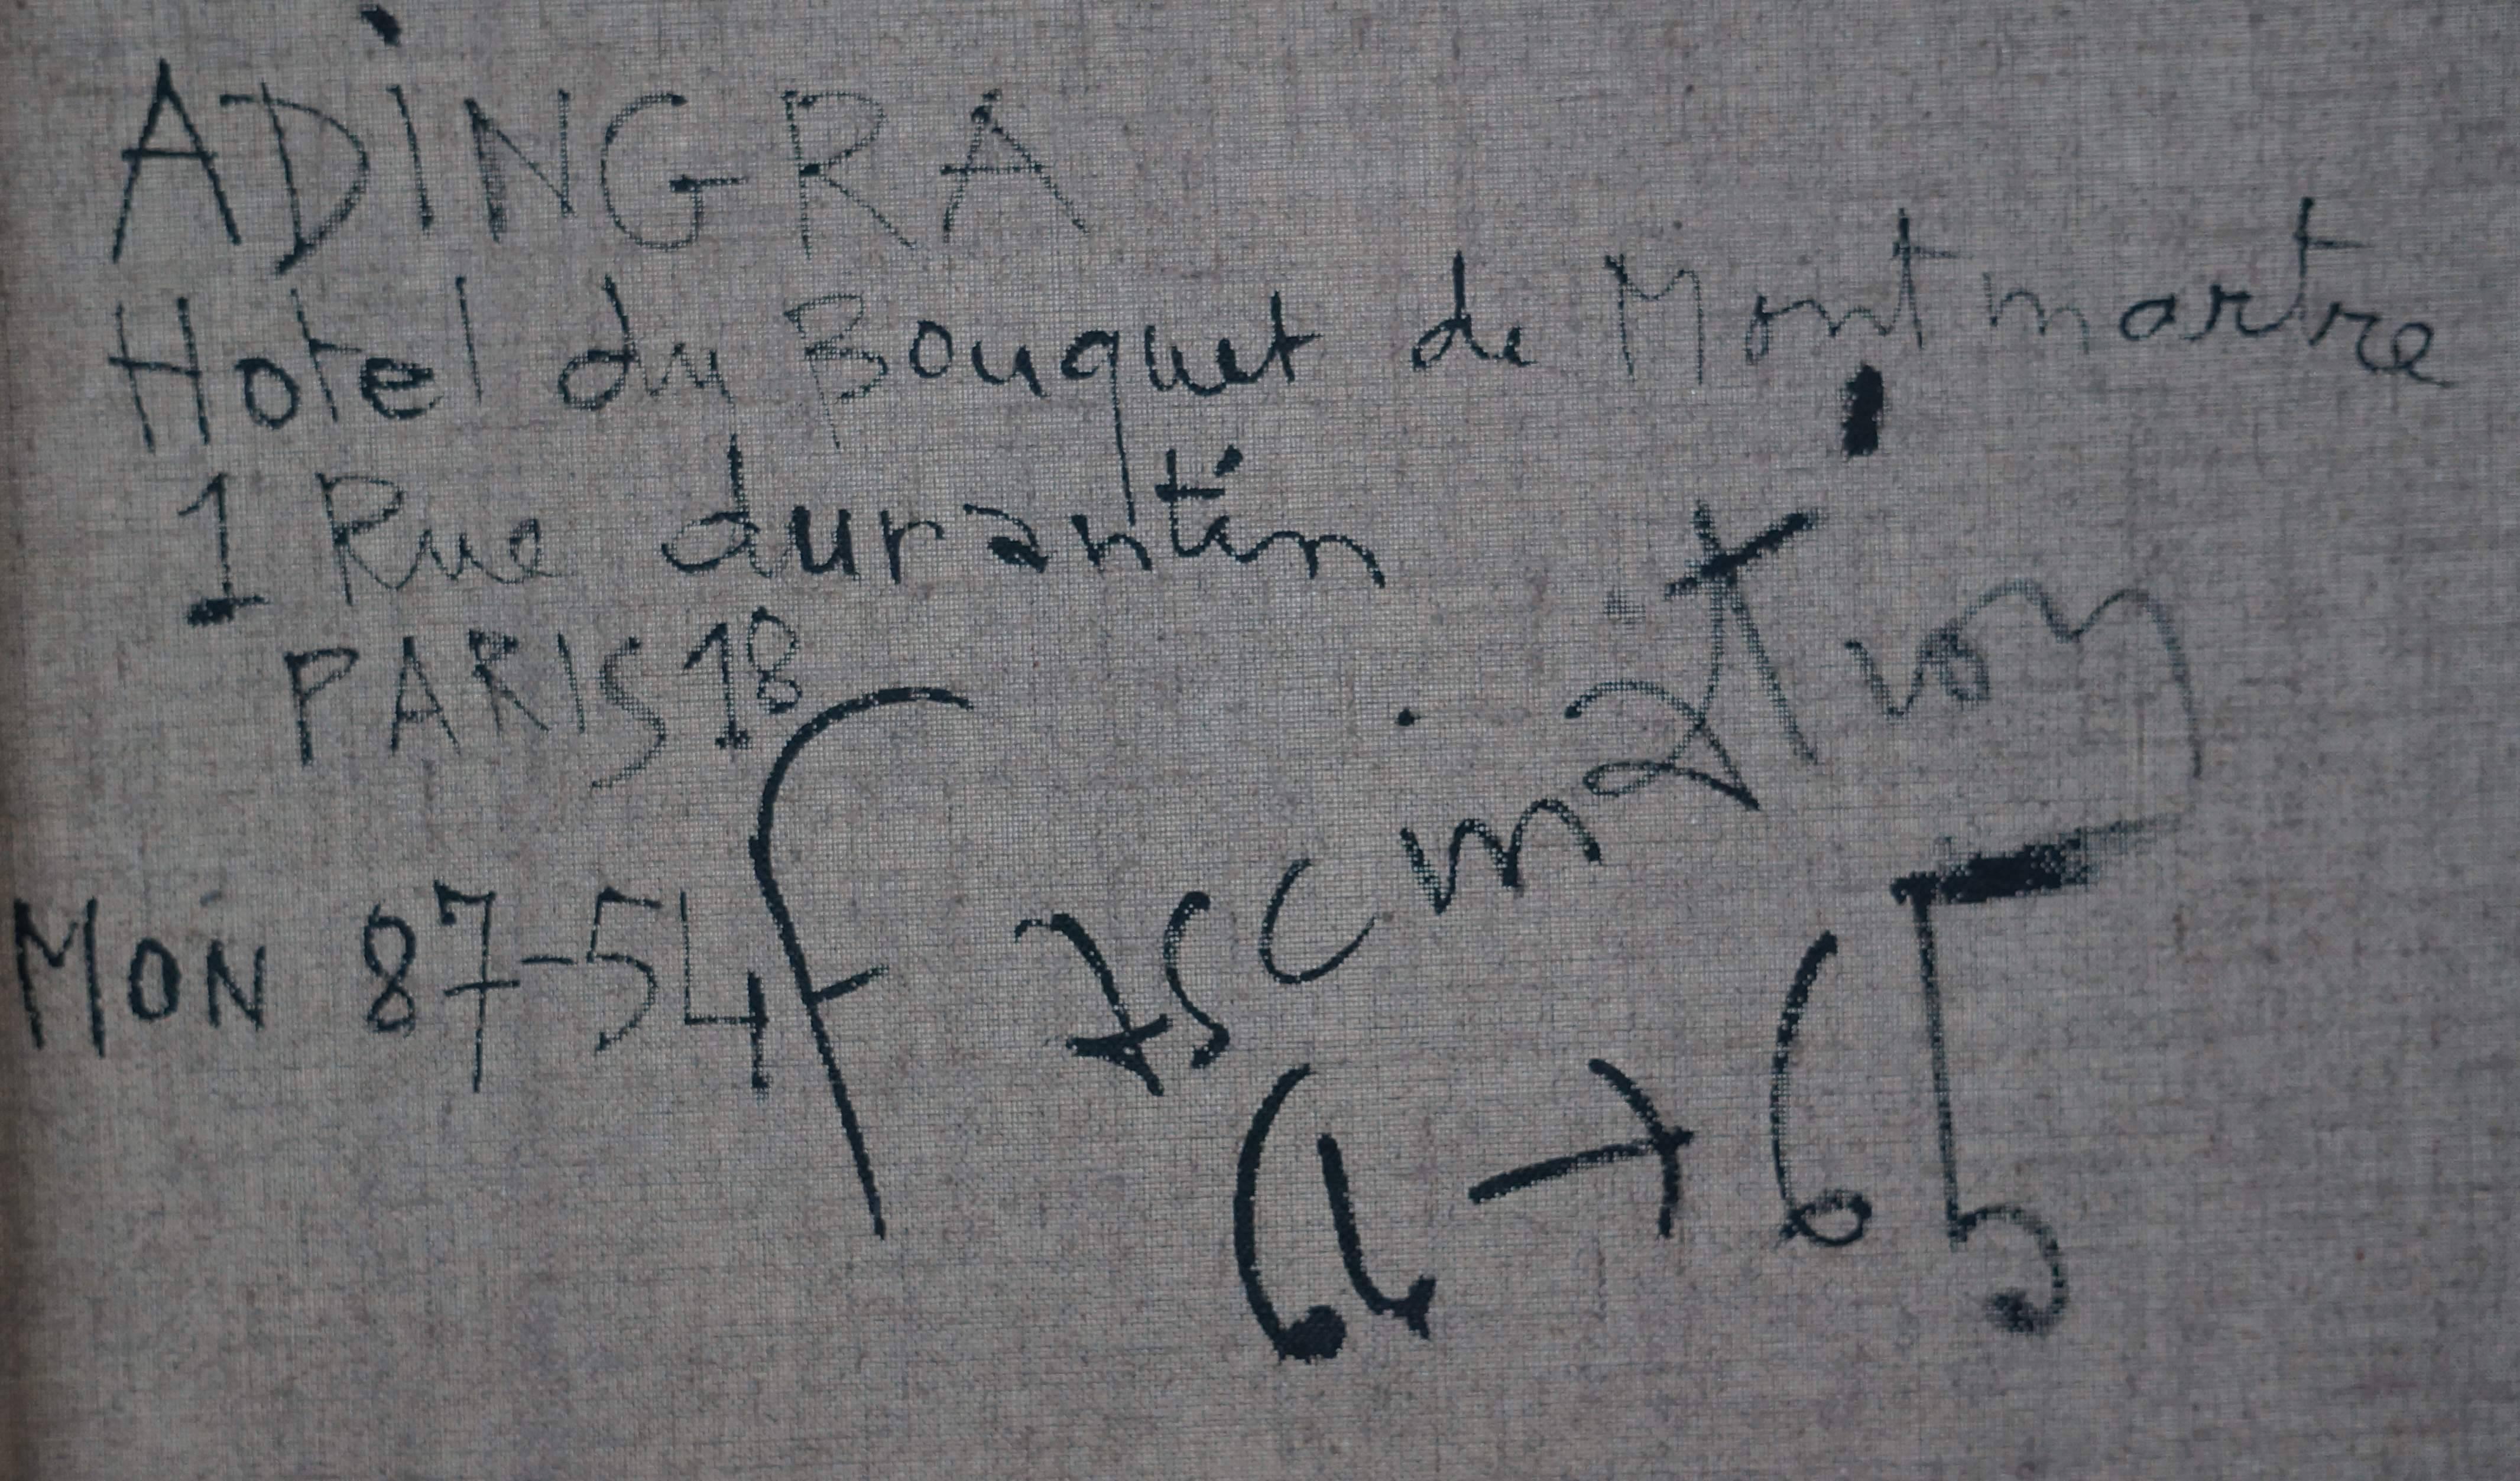 ADiNGRA
Hotel du Bouquet de Montmartre
1 Rue durantin
PARIS 18
MON 87-54
fascination
64 → 65